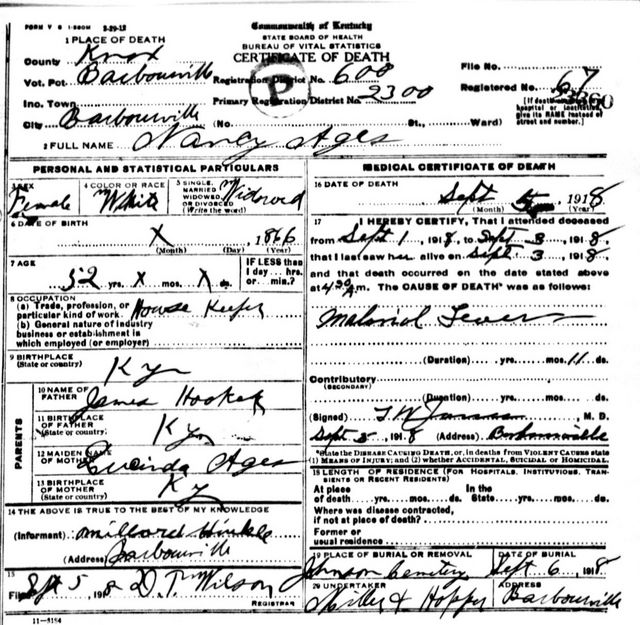 FORM V S 1-500M 3-29-12
Commonwealth of Kentucky
STATE BOARD OF HEALTH
BUREAU OF VITAL STATISTICS
CERTIFICATE OF DEATH
1 PLACE OF DEATH
County Knox
Vot. Pct. Barbourville
Inc. Town
City Barbourville (No St., Ward)
Registration District No. 600
Primary Registration District No. 2300
P
File No.
Registered No. 67
[If death in a hospital or institution, give its NAME instead of street and number.]
2 FULL NAME Nancy Ages
PERSONAL AND STATISTICAL PARTICULARS
3 SEX Female
4 COLOR OR RACE White
5 SINGLE, MARRIED, WIDOWED OR DIVORCED (Write the word) Widowed
6 DATE OF BIRTH X 1866
(Month) (Day) (Year)
7 AGE 52 yrs. X mos. X ds.
IF LESS than 1 day ... hrs. or ... min.?
8 OCCUPATION
(a) Trade, profession, or particular kind of work House Keeper
(b) General nature of industry
business or establishment in
which employed (or employer)
9 BIRTHPLACE
(State or country) Ky
PARENTS
10 NAME OF FATHER James Hooker
11 BIRTHPLACE OF FATHER (State or country) Ky
12 MAIDEN NAME OF MOTHER Lucinda Ages
13 BIRTHPLACE OF MOTHER (State or country) Ky
14 THE ABOVE IS TRUE TO THE BEST OF MY KNOWLEDGE
(Informant) Millard Hinkle
(Address) Barbourville
15
Filed Sept 5, 1918 D. T. Wilson
REGISTRAR
11-3184
MEDICAL CERTIFICATE OF DEATH
16 DATE OF DEATH
Sept 1918
(Month) (Year)
17 I HEREBY CERTIFY, That I attended deceased
from Sept 1, 1918, to Sept 3, 1918,
that I last saw her alive on Sept 3, 1918,
and that death occurred on the date stated above
at 4 30 A m. The CAUSE OF DEATH* was as follows:
Malarial Fever
(Duration) yrs. mos. 11 ds.
Contributory
(SECONDARY)
(Duration) yrs. mos. ds.
(Signed) M. D.
Sept 5, 1918 (Address) Barbourville
*State the DISEASE CAUSING DEATH, or, in deaths from VIOLENT CAUSES state
(1) MEANS OF INJURY; and (2) whether ACCIDENTAL, SUICIDAL or HOMICIDAL.
18 LENGTH OF RESIDENCE (FOR HOSPITALS, INSTITUTIONS, TRANSIENTS OR RECENT RESIDENTS)
At place of death yrs. mos. ds. In the State yrs. mos. ds.
Where was disease contracted,
if not at place of death?
Former or
usual residence
19 PLACE OF BURIAL OR REMOVAL Johnson Cemetery
DATE OF BURIAL Sept 6, 1918
20 UNDERTAKER Miller & Hopper
ADDRESS Barbourville